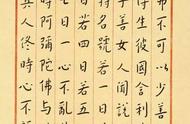 弗不可以少善
得生彼國舍利
子善女人聞說
持名號若一日
日若四日若五
七日一心不亂
時阿彌陀佛與
是人終時心不